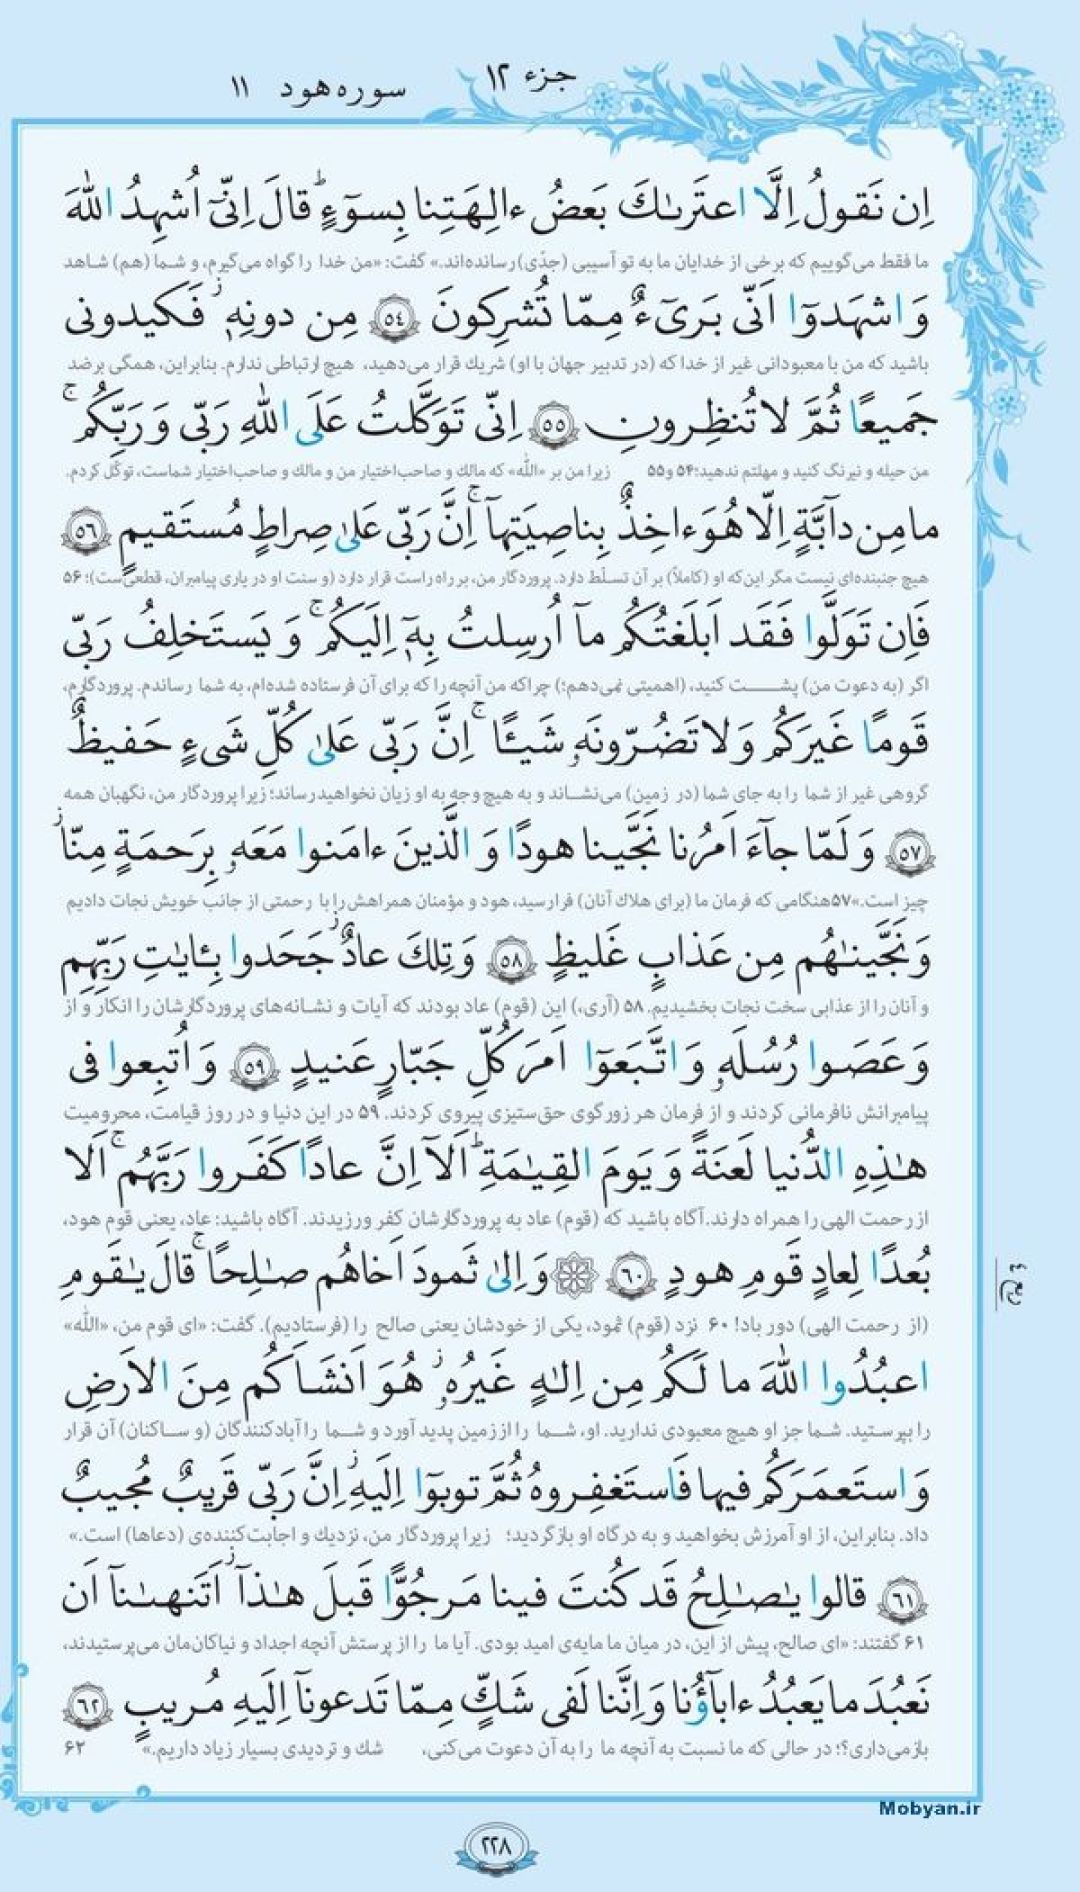 جزء ۱۲
سوره هود ۱۱
اِن نَقولُ اِلَّا اعتَرىٰكَ بَعضُ ءالِهَتِنا بِسوٓءٍ ؕ قالَ اِنّىٓ اُشهِدُ اللّٰهَ
ما فقط می‌گوییم که برخی از خدایان ما به تو آسیبی (جدّی) رسانده‌اند.» گفت: «من خدا را گواه می‌گیرم، و شما (هم) شاهد
وَاشهَدوٓا اَنّى بَرىٓءٌ مِمّا تُشرِكونَ ﴿٥٤﴾ مِن دونِهٖ ۖ فَكيدونى
باشید که من با معبودانی غیر از خدا که (در تدبیر جهان با او) شریك قرار می‌دهید، هیچ ارتباطی ندارم. بنابراین، همگی بر ضد
جَميعًا ثُمَّ لا تُنظِرونِ ﴿٥٥﴾ اِنّى تَوَكَّلتُ عَلَى اللّٰهِ رَبّى وَ رَبِّكُم ۚ
من حیله و نیرنگ کنید و مهلتم ندهید؛ ۵۴ و ۵۵ زیرا من بر «اللّٰه» که مالك و صاحب‌اختیار من و مالك و صاحب‌اختیار شماست، توکّل کردم.
ما مِن دآبَّةٍ اِلّا هُوَ ءاخِذٌ بِناصِيَتِهآ ۚ اِنَّ رَبّى عَلىٰ صِراطٍ مُستَقيمٍ ﴿٥٦﴾
هیچ جنبنده‌ای نیست مگر این‌که او (کاملاً) بر آن تسلّط دارد. پروردگار من، بر راه راست قرار دارد (و سنت او در یاری پیامبران، قطعی‌ست)؛ ۵۶
فَاِن تَوَلَّوا فَقَد اَبلَغتُكُم مآ اُرسِلتُ بِهٖٓ اِلَيكُم ۚ وَ يَستَخلِفُ رَبّى
اگر (به دعوت من) پشت کنید، (اهمیتی نمی‌دهم؛) چراکه من آنچه را که برای آن فرستاده شده‌ام، به شما رساندم. پروردگارم،
قَومًا غَيرَكُم وَلا تَضُرّونَهٗ شَيـًٔا ۚ اِنَّ رَبّى عَلىٰ كُلِّ شَىءٍ حَفيظٌ
گروهی غیر از شما را به جای شما (در زمین) می‌نشاند و به هیچ وجه به او زیان نخواهید رساند؛ زیرا پروردگار من، نگهبان همه
﴿٥٧﴾ وَ لَمّا جآءَ اَمرُنا نَجَّينا هودًا وَ الَّذينَ ءامَنوا مَعَهٗ بِرَحمَةٍ مِنّا ۖ
چیز است.» ۵۷ هنگامی که فرمان ما (برای هلاك آنان) فرا رسید، هود و مؤمنان همراهش را با رحمتی از جانب خویش نجات دادیم
وَ نَجَّينـٰهُم مِن عَذابٍ غَليظٍ ﴿٥٨﴾ وَ تِلكَ عادٌ ۖ جَحَدوا بِـٔايـٰتِ رَبِّهِم
و آنان را از عذابی سخت نجات بخشیدیم. ۵۸ (آری،) این (قوم) عاد بودند که آیات و نشانه‌های پروردگارشان را انکار و از
وَ عَصَوا رُسُلَهٗ وَ اتَّبَعوٓا اَمرَ كُلِّ جَبّارٍ عَنيدٍ ﴿٥٩﴾ وَ اُتبِعوا فى
پیامبرانش نافرمانی کردند و از فرمان هر زورگوی حق‌ستیزی پیروی کردند. ۵۹ در این دنیا و در روز قیامت، محرومیت
هـٰذِهِ الدُّنيا لَعنَةً وَ يَومَ القِيـٰمَةِ ؕ اَلآ اِنَّ عادًا كَفَروا رَبَّهُم ۚ اَلا
از رحمت الهی را همراه دارند. آگاه باشید که (قوم) عاد به پروردگارشان کفر ورزیدند. آگاه باشید: عاد، یعنی قوم هود،
بُعدًا لِعادٍ قَومِ هودٍ ﴿٦٠﴾ ۞ وَ اِلىٰ ثَمودَ اَخاهُم صـٰلِحًا ۚ قالَ يـٰقَومِ
(از رحمت الهی) دور باد! ۶۰ نزد (قوم) ثمود، یکی از خودشان یعنی صالح را (فرستادیم). گفت: «ای قوم من، «اللّٰه»
ربع ٤
اعبُدُوا اللّٰهَ ما لَكُم مِن اِلـٰهٍ غَيرُهٗ ۖ هُوَ اَنشَاَكُم مِنَ الاَرضِ
را بپرستید. شما جز او هیچ معبودی ندارید. او، شما را از زمین پدید آورد و شما را آبادکنندگان (و ساکنان) آن قرار
وَ استَعمَرَكُم فيها فَاستَغفِروهُ ثُمَّ توبوٓا اِلَيهِ ۚ اِنَّ رَبّى قَريبٌ مُجيبٌ
داد. بنابراین، از او آمرزش بخواهید و به درگاه او بازگردید؛ زیرا پروردگار من، نزدیك و اجابت‌کننده‌ی (دعاها) است.»
﴿٦١﴾ قالوا يـٰصـٰلِحُ قَد كُنتَ فينا مَرجُوًّا قَبلَ هـٰذآ ۖ اَتَنهىٰنآ اَن
۶۱ گفتند: «ای صالح، پیش از این، در میان ما مایه‌ی امید بودی. آیا ما را از پرستش آنچه اجداد و نیاکان‌مان می‌پرستیدند،
نَعبُدَ ما يَعبُدُ ءابآؤُنا وَ اِنَّنا لَفى شَكٍّ مِمّا تَدعونآ اِلَيهِ مُريبٍ ﴿٦٢﴾
بازمی‌داری؟؛ در حالی که ما نسبت به آنچه ما را به آن دعوت می‌کنی، شك و تردیدی بسیار زیاد داریم.» ۶۲
Mobyan.ir
۲۲۸